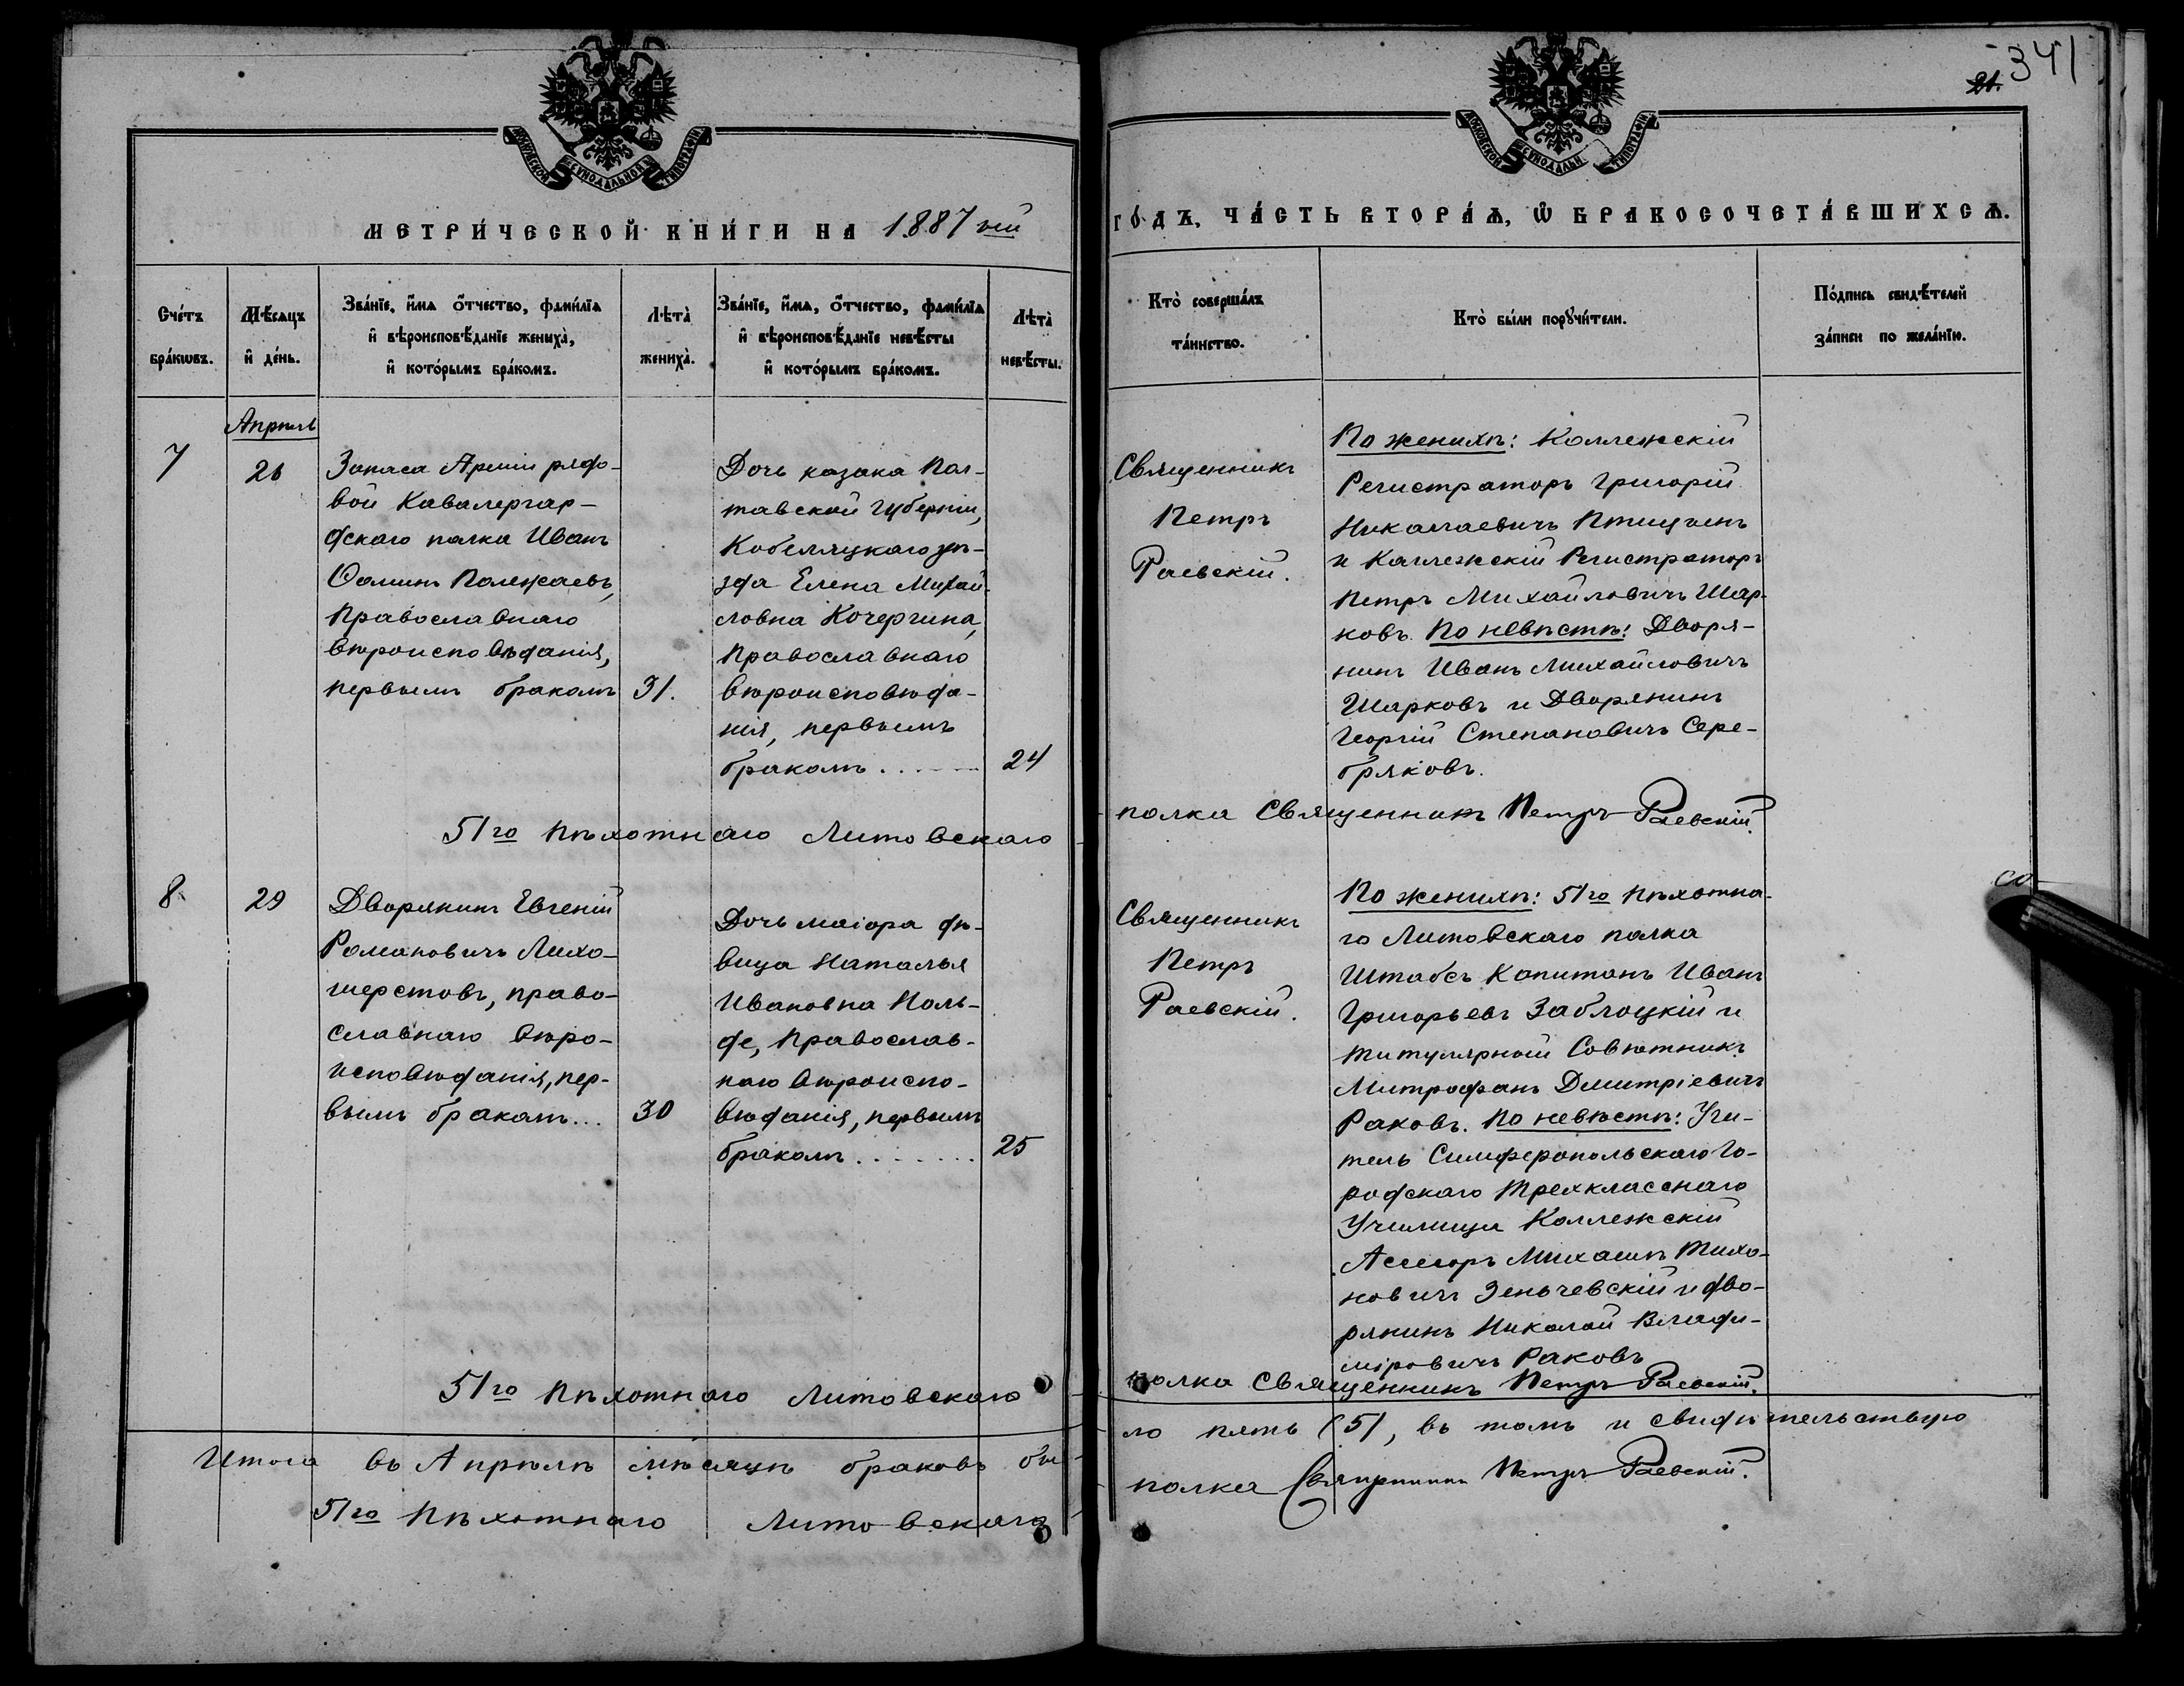 341
МОСКОВСКОЙ СѴНОДАЛЬНОЙ ТИПОГРАФІИ
МОСКОВСКОЙ СѴНОДАЛЬН ТИПОГРАФІИ
МЕТРИ́ЧЕСКОЙ КНИ́ГИ НА 1887 ый
ГО́ДЪ, ЧА́СТЬ ВТОРА́Ѧ, Ѡ҆ БРАКОСОЧЕТА́ВШИХСѦ.
Сче́тъ бра́кѡвъ.
Мѣ́сяцъ и҆ де́нь.
Зва́нїе, и҆́мя ѻ҆́тчество, фамѝлїа
и҆ вѣроисповѣ́данїе жениха̀,
и҆ кото́рымъ бра́комъ.
Лѣта̀ жениха̀.
Зва́нїе, и҆́мя, ѻ҆́тчество, фамѝлїа
и҆ вѣроисповѣ́данїе невѣ́сты
и҆ кото́рымъ бра́комъ.
Лѣта̀ невѣ́сты.
Кто̀ соверша́лъ
та́инство.
Кто̀ бы́ли порꙋчи́тели.
По́дпись свидѣ́телей
за́писи по жела́нїю.
Апрель
7
26
Запаса Арміи рядо-
вой Кавалергар-
дскаго полка Иванъ
Ѳоминъ Полежаевъ,
Православнаго
вѣроисповѣданія,
первымъ бракомъ
31.
Дочь казака Пол-
тавской Губерніи,
Кобеляцкаго уѣ-
зда Елена Михай-
ловна Кочергина,
Православнаго
вѣроисповѣда-
нія, первымъ
бракомъ
24
Священникъ
Петръ
Раевскій.
По женихѣ: Коллежскій
Регистраторъ Григорій
Николаевичъ Птицынъ
и Коллежскій Регистраторъ
Петръ Михайловичъ Шар-
ковъ. По невѣстѣ: Дворя-
нинъ Иванъ Михайловичъ
Шарковъ и Дворянинъ
Георгій Степановичъ Сере-
бряковъ.
51го Пѣхотнаго Литовскаго
полка Священникъ Петръ Раевскій.
8.
29
Дворянинъ Евгеній
Романовичъ Лихо-
шерстовъ, право-
славнаго вѣро-
исповѣданія, пер-
вымъ бракомъ...
30
Дочь маіора дѣ-
вица Наталья
Ивановна Ноль-
де, Православ-
наго вѣроиспо-
вѣданія, первымъ
бракомъ
25
Священникъ
Петръ
Раевскій.
По женихѣ: 51го Пѣхотна-
го Литовскаго полка
Штабсъ Капитанъ Иванъ
Григорьевъ Заблоцкій и
титулярный Совѣтникъ
Митрофанъ Дмитріевичъ
Раковъ. По невѣстѣ: Учи-
тель Симферопольскаго Го-
родскаго Трехкласснаго
Училища Коллежскій
Ассесоръ Михаилъ Тихо-
новичъ Зеньчевскій и дво-
рянинъ Николай Влади-
міровичъ Раковъ
51го Пѣхотнаго Литовскаго
полка Священникъ Петръ Раевскій.
Итого въ Апрѣлѣ мѣсяцѣ браковъ бы-
ло пять (5), въ томъ и свидѣтельствую
51го Пѣхотнаго Литовскаго
полка Священникъ Петръ Раевскій.